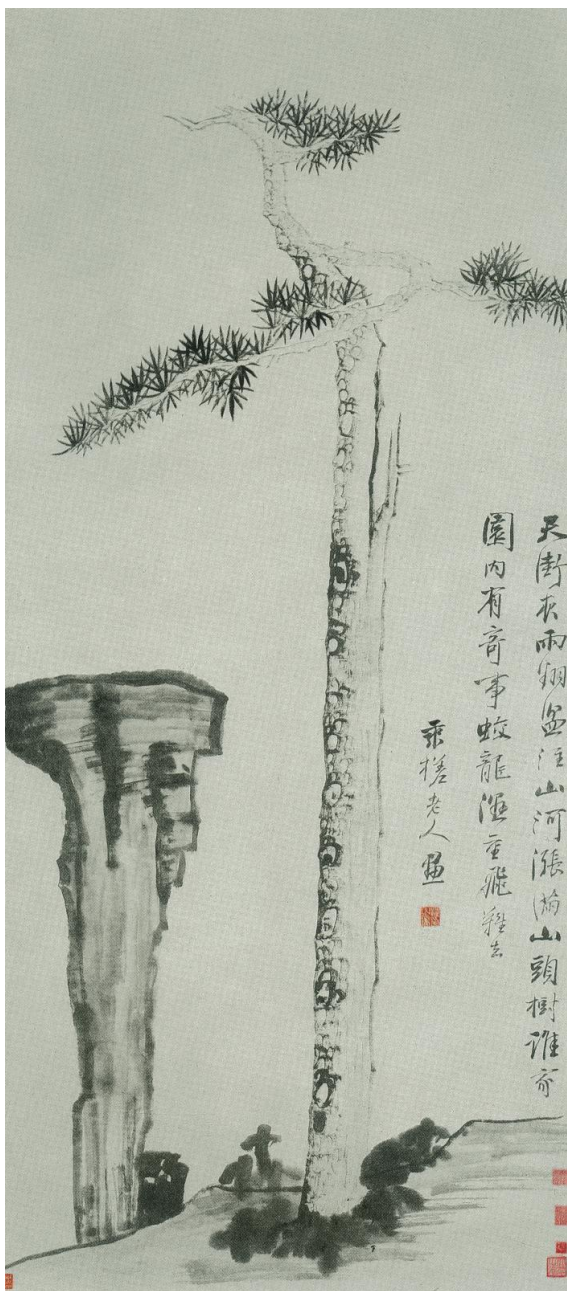 天街夜雨翻盆注山河漲滿山頭樹誰家
園內有奇事蛟龍濕重飛難去
乘槎老人畫